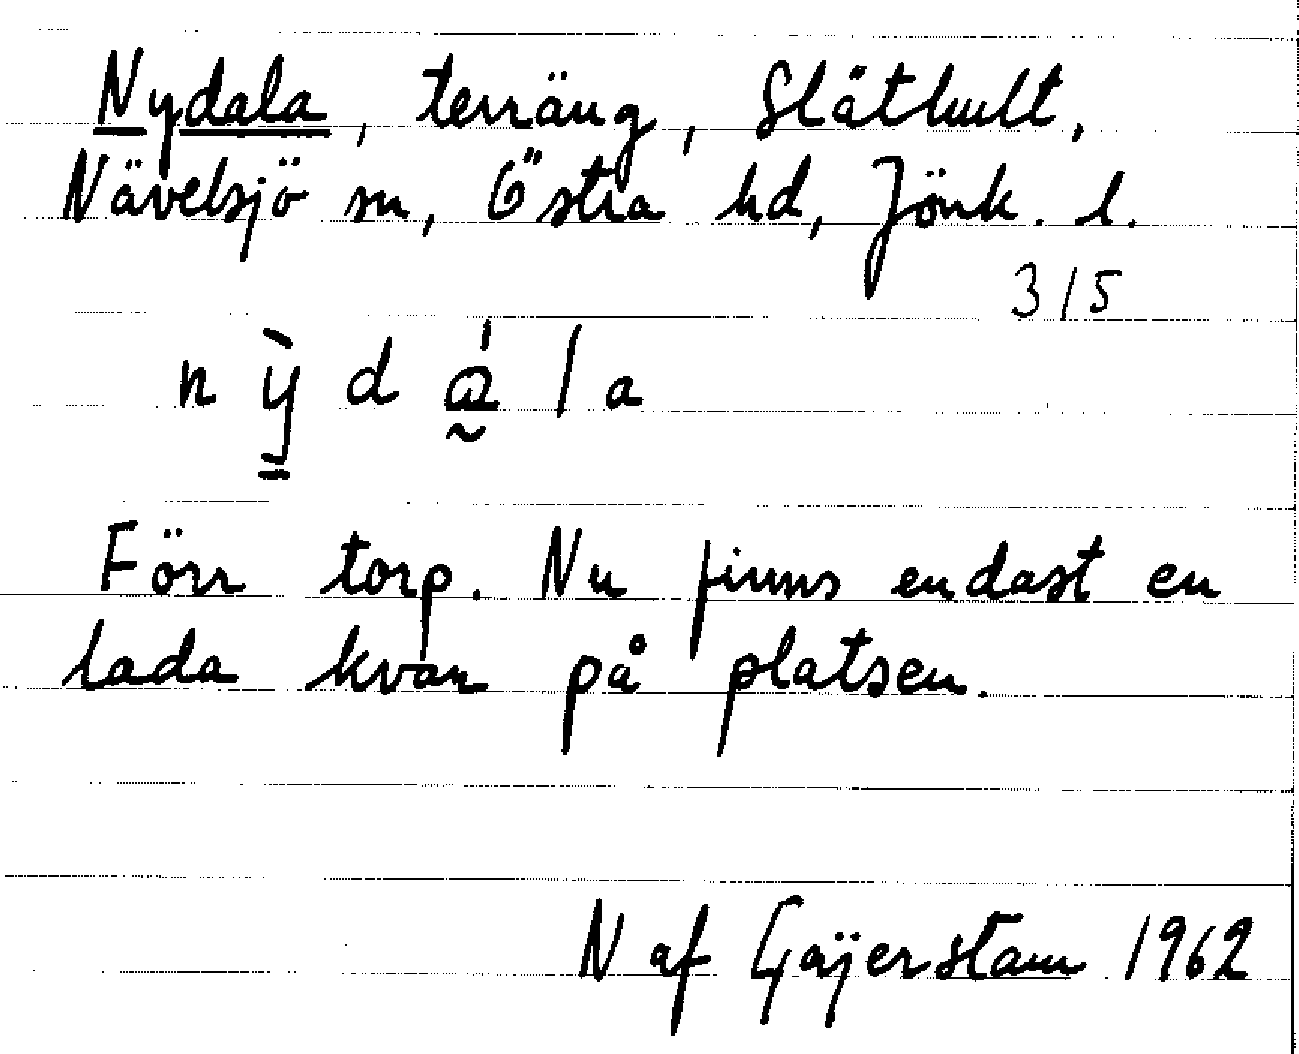 Nydala, terräng, Släthult,
Nävelsjö sn, Östra hd, Jönk. l.
3/5
n ỳ d á l a
Förr torp. Nu finns endast en
lada kvar på platsen.
N af Gejerstam 1962